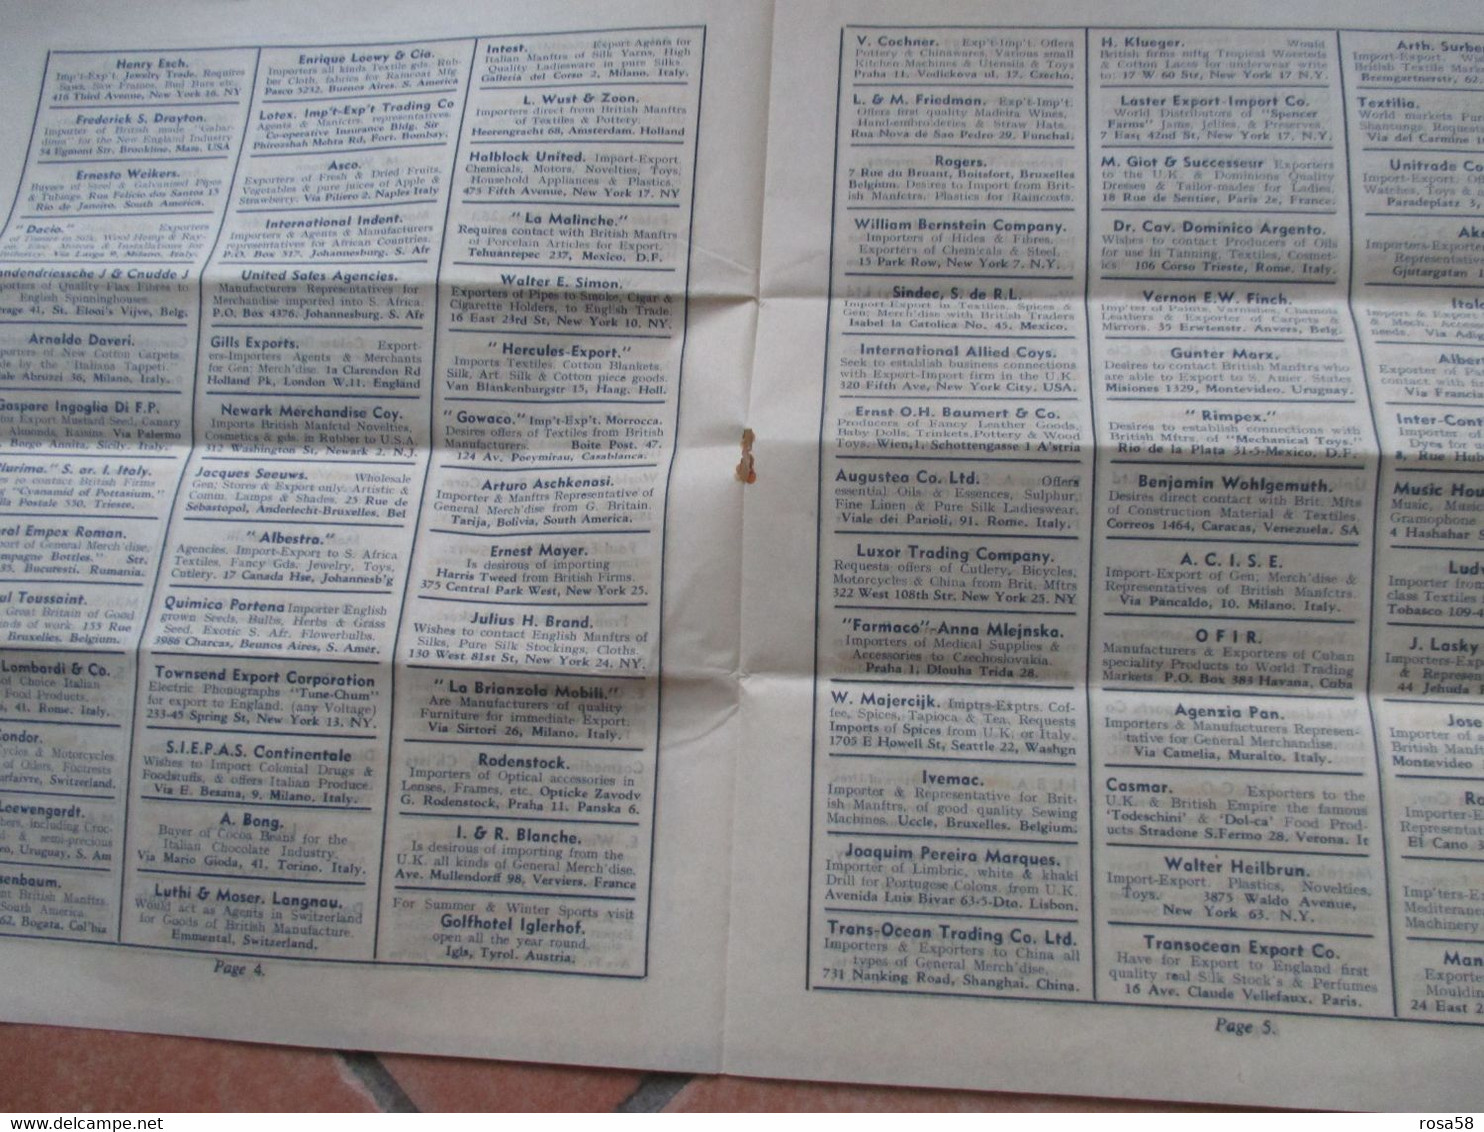 Henry Esch.
Imp't-Exp't. Jewelry Trade. Requires
Saws, Saw Frames, Bud Burs etc.
416 Third Avenue, New York 16. NY
Frederick S. Drayton.
Importer of British made
for the New England Industry
54 Egmont Str. Brookline. Mass. USA
Ernesto Weikers.
Buyers of Steel & Galvanised Pipes
& Tubings. Rua Felicio dos Santos 15
Rio de Janeiro. South America.
"Dacio." Exporters
Via Larga 9, Milano, Italy.
andendriessche J & Cnudde J
porters of Quality Flax Fibres to
English Spinninghouses.
41, St. Elooi's Vijve, Belg.
Arnaldo Daveri.
porters of New Cotton Carpets
de by the "Italiana Tappeti.
ale Abruzzi 36, Milano, Italy.
Gaspare Ingoglia Di F.P.
for Export Mustard Seed, Canary
Almonds, Raisins. Via Palermo
Borgo Annita, Sicily. Italy.
lurima." S. ar. l. Italy.
to contact British Firms
"Cyanamid of Pottasium."
lla Postale 550, Trieste.
ral Empex Roman.
port of General Merch'dise.
mpagne Bottles." Str.
35. Bucuresti, Rumania.
ul Toussaint.
Great Britain of Good
nds of work. 155 Rue
Bruxelles, Belgium.
Lombardi & Co.
of Choice Italian
Food Products.
41. Rome. Italy.
Condor.
Cycles & Motorcycles
of Oilers, Footrests
Switzerland.
Loewengardt.
hers, including Croc-
& semi-precious
eo, Uruguay, S. Am
senbaum.
nt British Manftrs.
South America.
62, Bogata. Col'bia
Enrique Loewy & Cia.
Importers all kinds Textile gds. Rub-
ber Cloth, fabrics for Raincoat Mfg.
Pasco 5252, Buenos Aires. S. America
Lotex. Imp't-Exp't Trading Co
Agents & Manfctrs. representatives.
Co-operative Insurance Bldg. Sir
Phirozshah Mehta Rd, Fort. Bombay.
Asco.
Exporters of Fresh & Dried Fruits,
Vegetables & pure juices of Apple &
Strawberry. Via Piliero 2, Naples Italy
International Indent.
Importers & Agents & Manufacturers
representatives for African Countries.
P.O. Box 517. Johannesburg. S. Afr
United Sales Agencies.
Manufacturers Representatives for
Merchandise imported into S. Africa.
P.O. Box 4376. Johannesburg. S. Afr
Gills Exports. Export-
ers-Importers Agents & Merchants
for Gen; Merch'dise. 1a Clarendon Rd
Holland Pk, London W.11. England
Newark Merchandise Coy.
Imports British Manfctd Novelties,
Cosmetics & gds. in Rubber to U.S.A.
312 Washington St, Newark 2. N.J.
Jacques Seeuws. Wholesale
Gen; Stores & Export only. Artistic &
Comm. Lamps & Shades. 25 Rue de
Sebastopol, Anderlecht-Bruxelles, Bel
"Albestra."
Agencies. Import-Export to S. Africa
Textiles, Fancy Gds, Jewelry, Toys,
Cutlery. 17 Canada Hse, Johannesb'g
Quimico Portena Importer English
grown Seeds, Bulbs, Herbs & Grass
Seed. Exotic S. Afr. Flowerbulbs.
3986 Charcas, Beunos Aires, S. Amer.
Townsend Export Corporation
Electric Phonographs "Tune-Chum"
for export to England. (any Voltage)
233-45 Spring St, New York 13. NY.
S.I.E.P.A.S. Continentale
Wishes to Import Colonial Drugs &
Foodstuffs, & offers Italian Produce.
Via E. Besana, 9. Milano, Italy.
A. Bong.
Buyer of Cocoa Beans for the
Italian Chocolate Industry.
Via Mario Gioda, 41, Torino, Italy.
Luthi & Moser. Langnau.
Would act as Agents in Switzerland
for Goods of British Manufacture.
Emmental, Switzerland.
Intest. Export Agents for
Italian Manftrs of Silk Yarns, High
Quality Ladieswear in pure Silks.
Galleria del Corso 2, Milano. Italy.
L. Wust & Zoon.
Importers direct from British Manftrs
of Textiles & Pottery.
Heerengracht 68, Amsterdam. Holland
Halblock United. Import-Export.
Chemicals, Motors, Novelties, Toys,
Household Appliances & Plastics.
475 Fifth Avenue, New York 17. NY
"La Malinche."
Requires contact with British Manftrs
of Porcelain Articles for Export.
Tehuantepec 237, Mexico, D.F.
Walter E. Simon.
Exporters of Pipes to Smoke, Cigar &
Cigarette Holders, to English Trade.
16 East 23rd St, New York 10. NY.
"Hercules-Export."
Imports Textiles. Cotton Blankets.
Silk, Art. Silk & Cotton piece goods.
Van Blankenburgstr 15, Haag. Holl.
"Gowaco." Imp't-Exp't. Morrocca.
Desires offers of Textiles from British
Manufacturers. Boite Post. 47.
124 Av. Poeymirau, Casablanca.
Arturo Aschkenasi.
Importer & Manftrs Representative of
General Merch'dise from G. Britain.
Tarija, Bolivia, South America.
Ernest Mayer.
Is desirous of importing
Harris Tweed from British Firms.
375 Central Park West, New York 25.
Julius H. Brand.
Wishes to contact English Manftrs of
Silks, Pure Silk Stockings, Cloths.
130 West 81st St, New York 24. NY.
"La Brianzola Mobili."
Are Manufacturers of quality
Furniture for immediate Export.
Via Sirtori 26, Milano. Italy.
Rodenstock.
Importers of Optical accessories in
Lenses, Frames, etc. Opticke Zavodv
G. Rodenstock, Praha 11. Panska 6.
I. & R. Blanche.
Is desirous of importing from the
U.K. all kinds of General Merch'dise.
Ave. Mullendorff 98, Verviers. France
For Summer & Winter Sports visit
Golfhotel Iglerhof.
open all the year round.
Igls, Tyrol. Austria.
Page 4.
V. Cochner. Exp't-Imp't. Offers
Pottery & Chinawares. Various small
Kitchen Machines & Utensils & Toys
Praha 11. Vodickova ul. 17. Czecho.
L. & M. Friedman. Exp't-Imp't.
Offers first quality Madeira Wines,
Handembroideries & Straw Hats.
Rua Nova de Sao Pedro 29. Funchal.
Rogers.
7 Rue du Bruant, Boitsfort, Bruxelles
Belgium. Desires to Import from Brit-
ish Manfctrs. Plastics for Raincoats.
William Bernstein Company.
Importers of Hides & Fibres.
Exporters of Chemicals & Steel.
15 Park Row, New York 7. N.Y.
Sindec, S. de R.L.
Import-Export in Textiles, Spices &
Gen; Merch'dise with British Traders
Isabel la Catolica No. 45. Mexico.
International Allied Coys.
Seek to establish business connections
with Export-Import firm in the U.K.
320 Fifth Ave, New York City. USA.
Ernst O.H. Baumert & Co.
Producers of Fancy Leather Goods,
Baby Dolls, Trinkets, Pottery & Wood
Toys. Wien,1, Schottengasse 1 A'stria
Augustea Co. Ltd. Offers
essential Oils & Essences, Sulphur,
Fine Linen & Pure Silk Ladieswear.
Viale dei Parioli, 91. Rome. Italy.
Luxor Trading Company.
Requests offers of Cutlery, Bicycles,
Motorcycles & China from Brit. Mftrs
322 West 108th Str. New York 25. NY
"Farmaco"-Anna Mlejnska.
Importers of Medical Supplies &
Accessories to Czechoslovakia.
Praha 1, Dlouha Trida 28.
W. Majercijk. Imptrs-Exptrs. Cof-
fee, Spices, Tapioca & Tea. Requests
Imports of Spices from U.K. or Italy.
1705 E Howell St, Seattle 22, Washgn
Ivemac.
Importer & Representative for Brit-
ish Manftrs. of good quality Sewing
Machines. Uccle, Bruxelles, Belgium.
Joaquim Pereira Marques.
Importer of Limbric, white & khaki
Drill for Portugese Colons. from U.K.
Avenida Luis Bivar 63/5-Dto. Lisbon.
Trans-Ocean Trading Co. Ltd.
Importers & Exporters to China all
types of General Merch'dise.
731 Nanking Road, Shanghai. China.
H. Klueger. Would
British firms mftg Tropical Worsteds
& Cotton Laces for underwear write
to: 17 W 60 Str, New York 17 N.Y.
Laster Export-Import Co.
World Distributors of "Spencer
Farms" Jams, Jellies, & Preserves.
7 East 42nd St, New York 17. N.Y.
M. Giot & Successeur Exporters
to the U.K. & Dominions Quality
Dresses & Tailor-mades for Ladies.
18 Rue de Sentier, Paris 2e, France.
Dr. Cav. Dominico Argento.
Wishes to contact Producers of Oils
for use in Tanning, Textiles, Cosmet-
ics 106 Corso Trieste, Rome. Italy.
Vernon E.W. Finch.
Impter of Paints, Varnishes, Chamois
Leathers & Exporter of Carpets &
Mirrors. 35 Erwtenstr. Anvers, Belg.
Gunter Marx.
Desires to contact British Manftrs who
are able to Export to S. Amer. States
Misiones 1329, Montevideo. Uruguay.
"Rimpex."
Desires to establish connections with
British Mftrs. of "Mechanical Toys."
Rio de la Plata 31-5-Mexico. D.F.
Benjamin Wohlgemuth.
Desires direct contact with Brit. Mfts
of Construction Material & Textiles.
Correos 1464, Caracas, Venezuela. SA
A. C. I. S. E.
Import-Export of Gen; Merch'dise &
Representatives of British Manfctrs.
Via Pancaldo, 10. Milano. Italy.
O F I R.
Manufacturers & Exporters of Cuban
speciality Products to World Trading
Markets P.O. Box 383 Havana, Cuba
Agenzia Pan.
Importers & Manufacturers Represen-
tative for General Merchandise.
Via Camelia, Muralto. Italy.
Cosmar. Exporters to the
U.K. & British Empire the famous
'Todeschini' & 'Dol-ca' Food Prod-
ucts Stradone S.Fermo 28. Verona. It
Walter Heilbrun.
Import-Export. Plastics, Novelties,
Toys. 3875 Waldo Avenue,
New York 63. N.Y.
Transocean Export Co.
Have for Export to England first
quality real Silk Stock's & Perfumes
16 Ave. Claude Vellefaux. Paris.
Page 5.
Arth. Surber
Import-Export. W
British Textile Market
Beemgartnerstr, 62.
Textilia.
World markets Pur
Shantungs. Request
Via del Carmine 1
Unitrade Co
Import-Export.
Watches, Toys &
Paradeplatz 3,
Ak
Importers-Exporter
Representative
Gjutargatan
Italc
Import & Export
& Mech. Access
nends. Via Adig
Albert
Exporter of Pa
contact with
Via Franci
Inter-Cont
Importer of
Dyes for u
8, Rue Hub
Music Hou
Music, Music
Gramophones
4 Hashahar S
Ludv
Importer from
class Textiles
Tobasco 109-4
J. Lasky
Importers-Ex
& Represent
44 Jehuda
Jose
Importer of a
British Manft
Montevideo
Ro
Importers-Exp
Representativ
El Cano 3
Imp'ters-Exp
Mediteranean
Machinery
Man
Exporte
Mouldin
24 East 2
rosa58